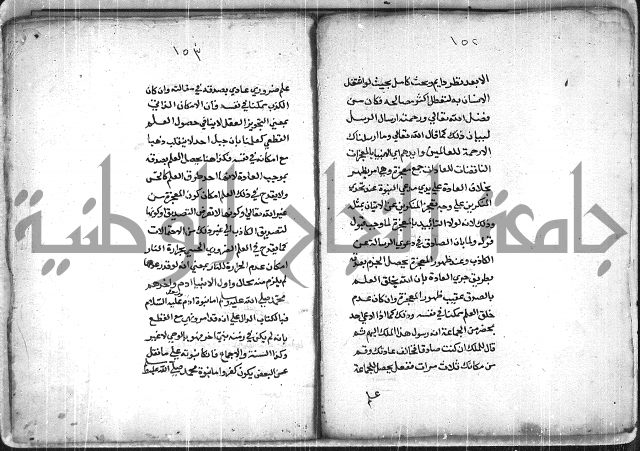 ١٥٢
الا بعد نظر دايم وبحث كامل بحيث لو اشتغل
الانسان به لتعطل اكثر مصالحه فكان من
فضل الله تعالي ورحمته ارسال الرسل
لبيان ذلك كما قال الله تعالي وما ارسلناك
الا رحمة للعالمين وايدهم اي الانبيا بالمعجزات
الناقضات للعادات جمع معجزة وهي امر يظهر
بخلاف العادة علي يدي مدعي النبوة عند تحدي
المنكرين علي وجه يعجز المنكرين عن الاتيان بمثله
وذلك لانه لولا التاييد بالمعجزة لما وجب قبول
قوله ولما بان الصادق في دعوي الرسالة عن
الكاذب وعند ظهور المعجزة يحصل الجزم بصدقه
بطريق جري العادة بان الله يخلق العلم
بالصدق عقيب ظهور المعجزة وان كان عدم
خلق العلم ممكنا في نفسه وذلك كما اذا ادعي احد
بمحضر من الجماعة انه رسول هذا الملك اليهم ثم
قال للملك ان كنت صادقا فخالف عادتك وقم
من مكانك ثلاث مرات ففعل يحصل للجماعة
علم
١٥٣
علم ضروري عادي بصدقه في مقالته وان كان
الكذب ممكنا في نفسه فان الامكان الذاتي
بمعني التجويز العقلي لا ينافي حصول العلم
القطعي كعلمنا بان جبل احد لم ينقلب ذهبا
مع امكانه في نفسه فكذا هنا يحصل العلم بصدقه
بموجب العادة لانها احد طرق العلم كالحس
ولا يقدح في ذلك العلم امكان كون المعجزة من
غير الله تعالي او كونها لا لغرض التصديق او كونها
لتصديق الكاذب الي غير ذلك من الاحتمالات
كما لا يقدح في العلم الضروري الحسي بحرارة النار
امكان عدم الحرارة للنار بمعني انه لو قدر عدمها
لم يلزم منه محال واول الانبيا ادم واخرهم
محمد صلي الله عليه وسلم اما نبوة ادم عليه السلام
فبالكتاب الدال علي انه قد امر ونهي مع القطع
بانه لم يكن في زمنه نبي اخر فهو بالوحي لا غير
وكذا السنة والاجماع فانكار نبوته علي ما نقل
عن البعض يكون كفرا واما نبوة محمد صلي الله عليه
جامعة النجاح الوطنية